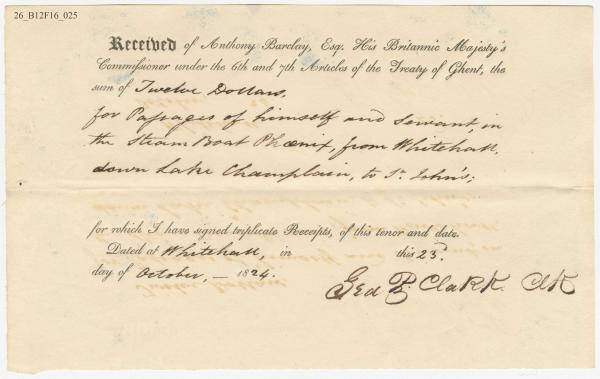 26_B12F16_025
Received of Anthony Barclay, Esq. His Britannic Majesty's
Commissioner under the 6th and 7th Articles of the Treaty of Ghent, the
sum of Twelve Dollars,
for Passages of himself and Servant, in
the Steam Boat Phœnix, from Whitehall,
down Lake Champlain, to St. John's;
for which I have signed triplicate Receipts, of this tenor and date.
Dated at Whitehall, in this 23d.
day of October, — 1824.
Geo B. Clark. Clk